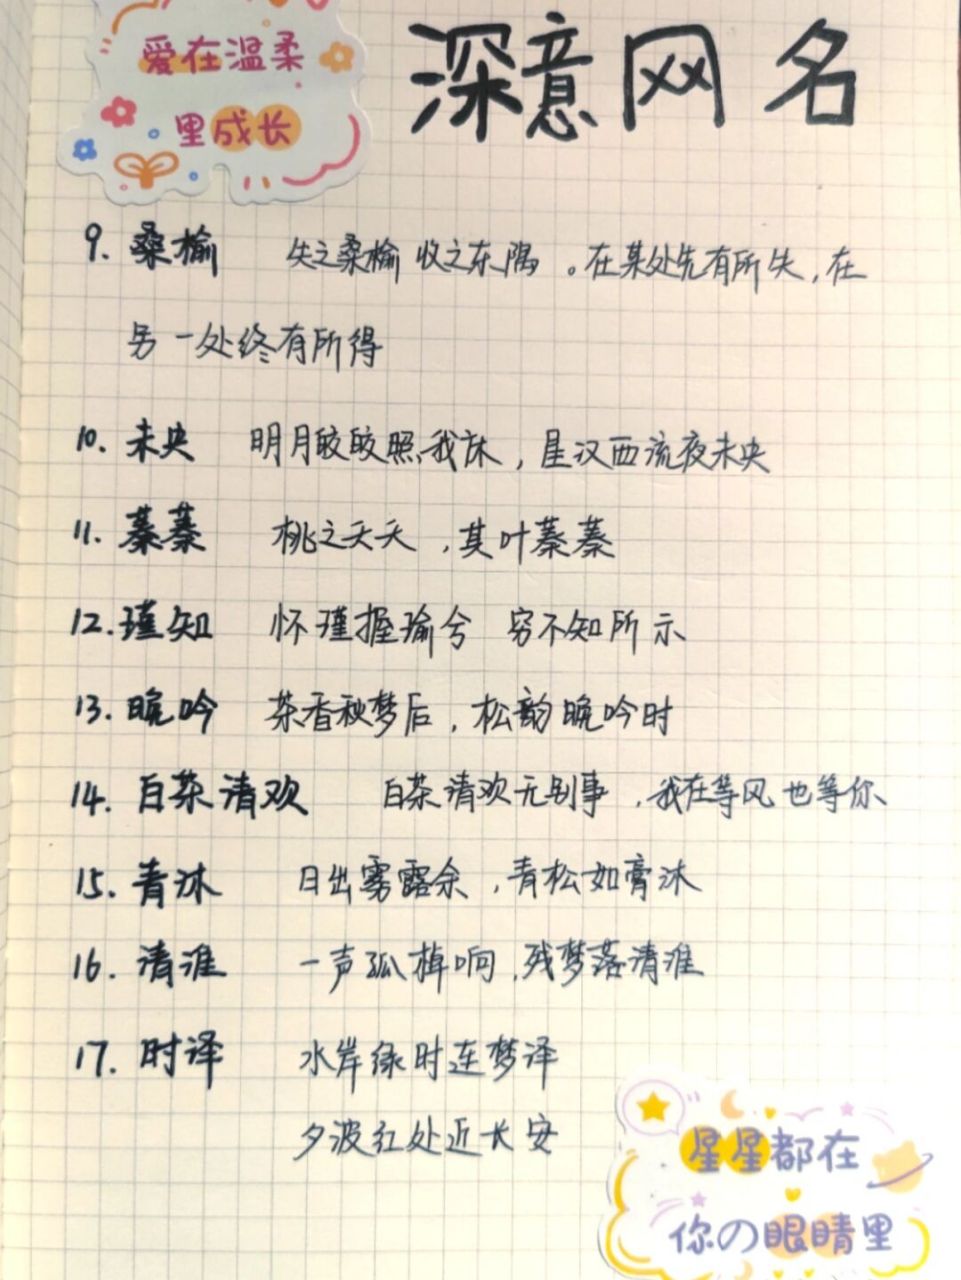 爱在温柔
里成长
深意网名
9. 桑榆 失之桑榆 收之东隅。在某处先有所失,在
另一处终有所得
10. 未央 明月皎皎照我床,星汉西流夜未央
11. 蓁蓁 桃之夭夭,其叶蓁蓁
12. 瑾知 怀瑾握瑜兮 穷不知所示
13. 晚吟 茶香秋梦后,松韵晚吟时
14. 白茶清欢 白茶清欢无别事,我在等风也等你
15. 青沐 日出雾露余,青松如膏沐
16. 清淮 一声孤棹响,残梦落清淮
17. 时译 水岸绿时连梦泽
夕波红处近长安
星星都在
你の眼睛里